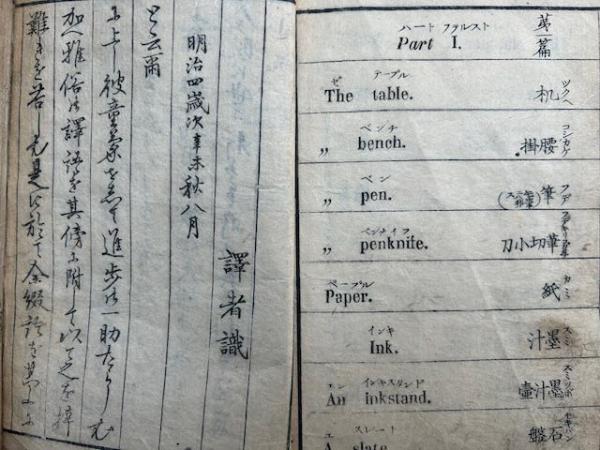 難きを苦しむ是に於て余綴語を
加へ雅俗の譯語を其傍に附して以て之を梓
に上し彼童蒙をして進歩の一助たらしむ
と云爾
明治四歳次辛未秋八月
譯者識
パート ファルスト
Part I.
第一篇
ゼ テーブル
The table.
机 ツクヘ
ベンチ
„ bench.
腰掛 コシカケ
ペン
„ pen.
筆 フデ
ペンナイフ
„ penknife.
筆切小刀
ペープル
Paper.
紙 カミ
インキ
Ink.
墨汁 スミ
エン インキスタンド
An inkstand.
墨汁壺 スミツボ
エ スレート
A slate.
石盤 セキバン